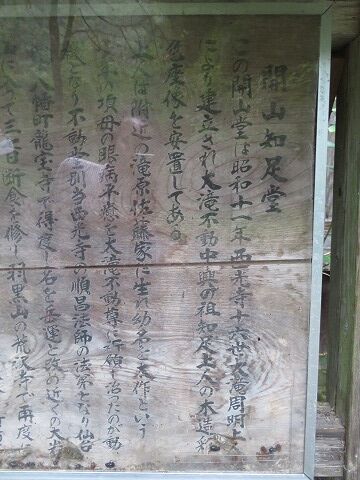 開山知足堂
この開山堂は昭和十一年西光寺十六世大滝周明
により建立され大滝不動中興の祖知足上人の木造彩
色座像を安置してある
上人は附近の滝原佐藤家に生れ幼名を大作という
の頃母の眼病不癒を大滝不動尊に祈願し治ったのが動
となり不動堂別当西光寺の順昌法師の法弟となり仙台
八幡町龍宝寺で得度し名を
運と改め近くの大
三
日断食を修し羽黒山の荒沢寺で再度